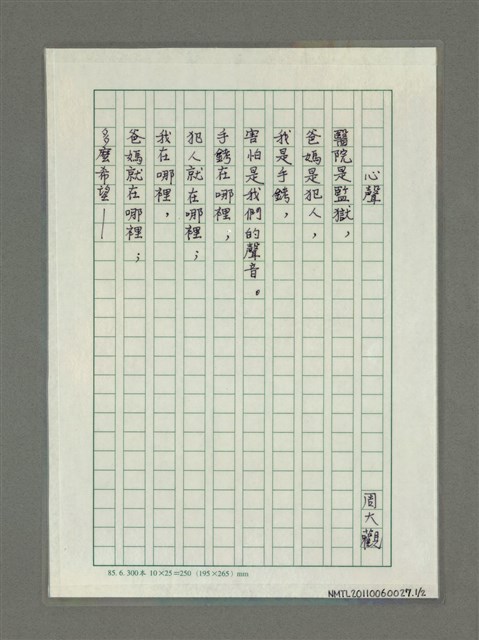 心聲
周大觀
醫院是監獄，
爸媽是犯人，
我是手銬，
害怕是我們的聲音。
手銬在哪裡，
犯人就在哪裡；
我在哪裡，
爸媽就在哪裡；
多麼希望—
85. 6. 300本 10×25=250 (195×265) mm
NMTL20110060027.1/2